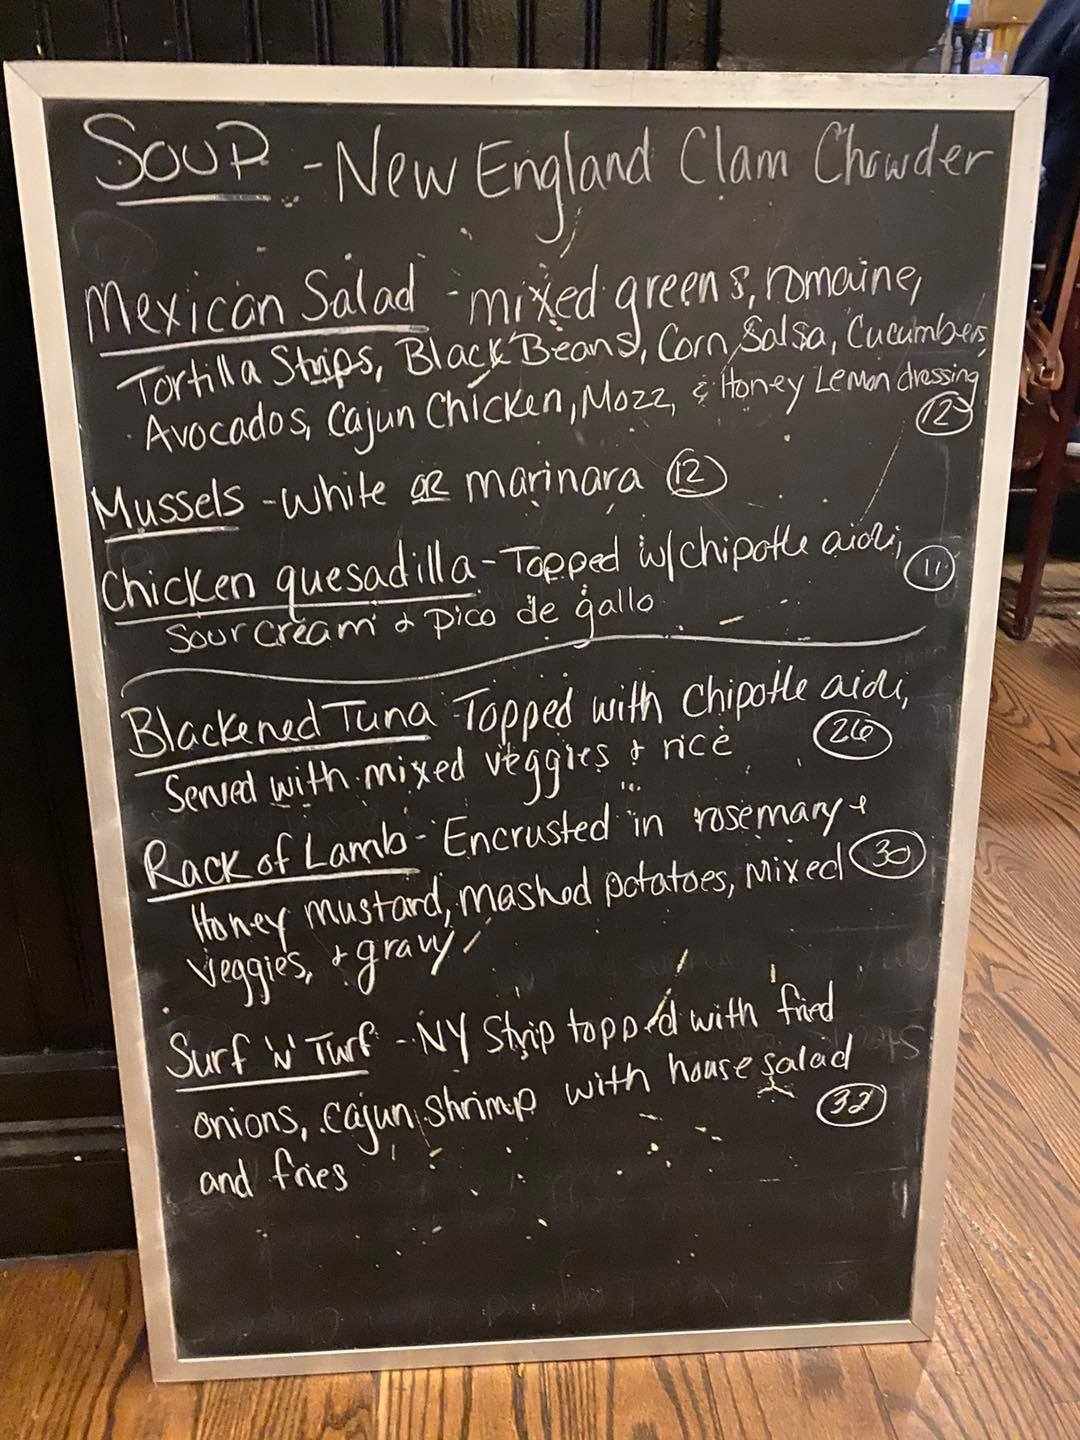 SOUP - New England Clam Chowder
Mexican Salad - mixed greens, romaine,
Tortilla Strips, Black Beans, Corn Salsa, Cucumbers,
Avocados, Cajun Chicken, Mozz, & Honey Lemon dressing
12
Mussels - white or marinara 12
Chicken quesadilla - Topped w/chipotle aioli, 11
Sour cream & pico de gallo
Blackened Tuna - Topped with Chipotle aioli,
Served with mixed veggies & rice 26
Rack of Lamb - Encrusted in rosemary +
Honey mustard, mashed potatoes, mixed 30
veggies, + gravy
Surf 'N' Turf - NY Strip topped with fried
onions, cajun shrimp with house salad 32
and fries